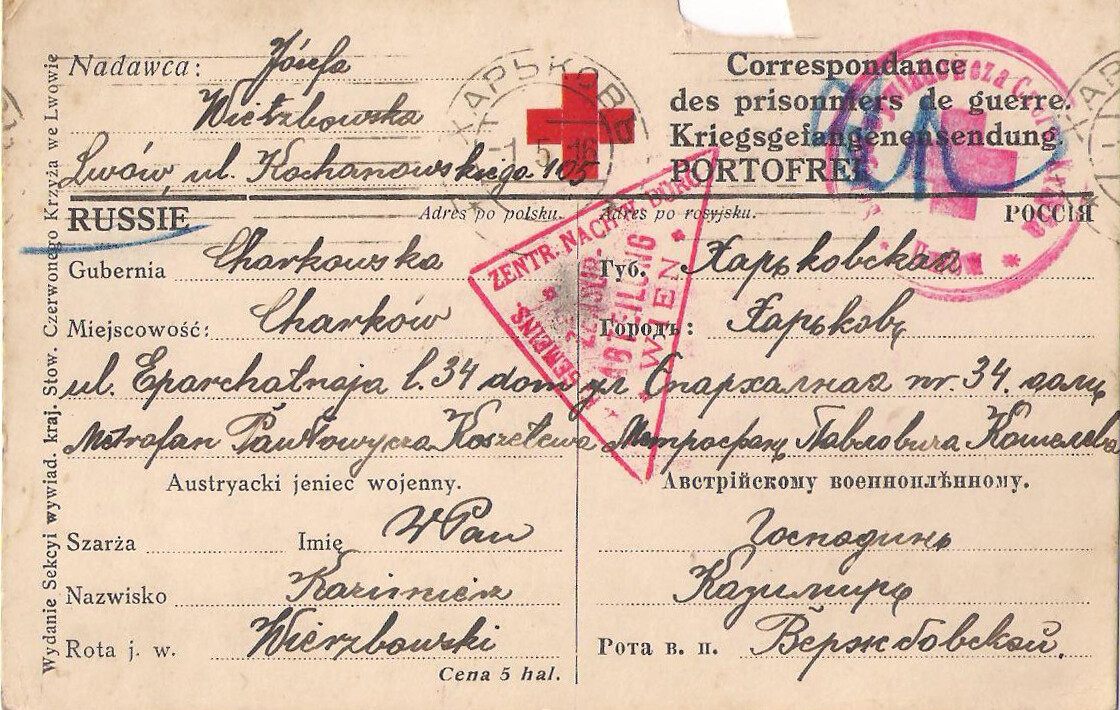 Nadawca: Józefa
Wierzbowska
Lwów ul. Kochanowskiego 105
Correspondance
des prisonniers de guerre.
Kriegsgefangenensendung
PORTOFREI
ХАРЬКОВЪ
1 5 16
RUSSIE
Adres po polsku.
Gubernia Charkowska
Miejscowość: Charków
ul. Eparchalnaja l. 34 dom
Metrofan Pawłowycza Koszelewa
Austryacki jeniec wojenny.
Szarża Imię WPan
Nazwisko Kazimierz
Rota j. w. Wierzbowski
Cena 5 hal.
Adres po rosyjsku.
РОССІЯ
Губ. Харьковская
Городъ: Харьковъ
ул Епархалная nr. 34.
Павловича Кошелева
Австрійскому военноплѣнному.
Господинъ
Казимиръ
Рота в. п. Вержбовской.
ZENTR. NACHW. BURO
GEMEINS.
ZENSUR-
ABTEILUNG
WIEN
Wydanie Sekcyi wywiad. kraj. Stow. Czerwonego Krzyża we Lwowie